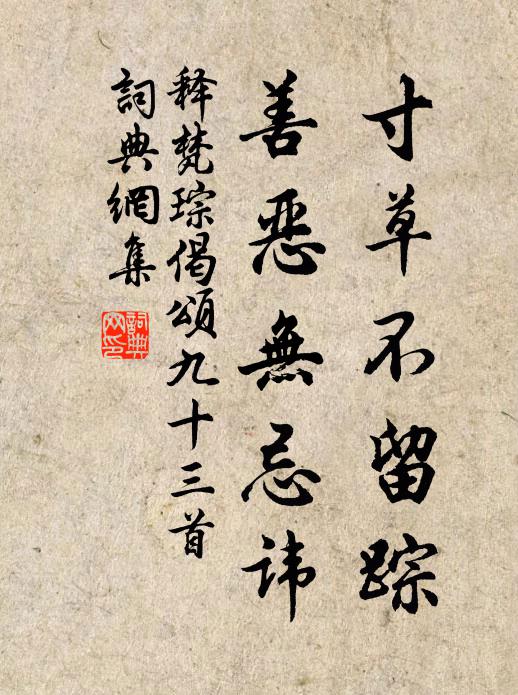 寸草不留踪
善惡無忌諱
释梵琮偈頌九十三首
詞典網集
詞典
网印